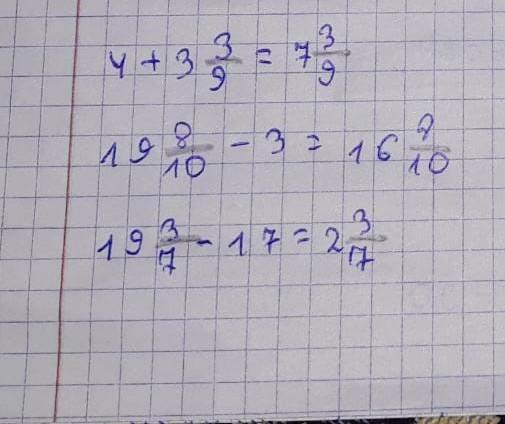 4 + 3 3/9 = 7 3/9
19 8/10 - 3 = 16 8/10
19 3/7 - 17 = 2 3/7